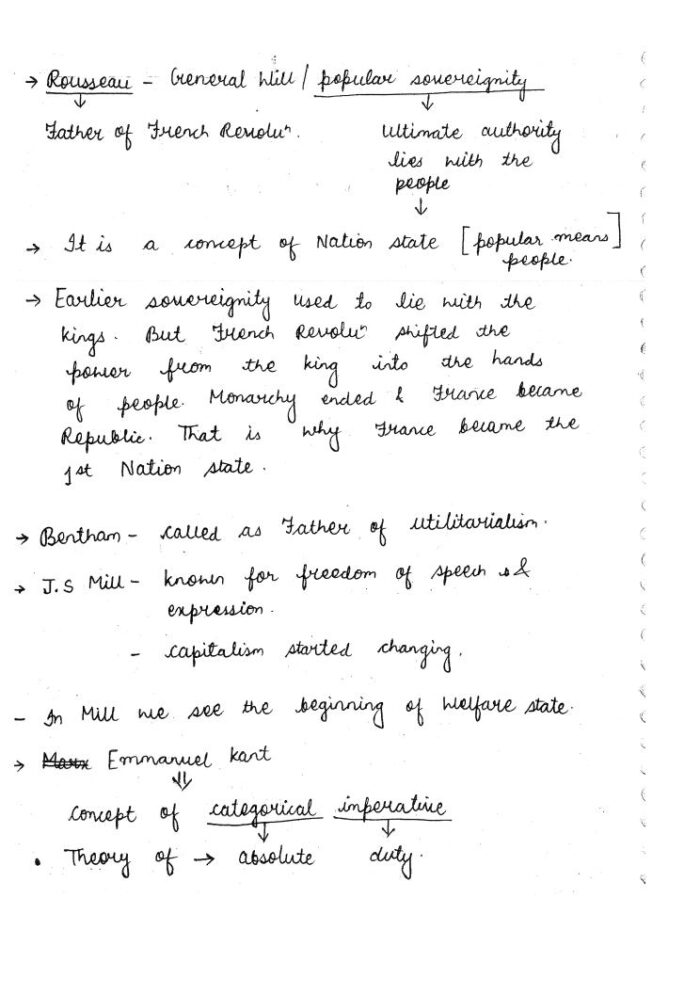 → Rousseau - General Will / popular sovereignity
↓ ↓
Father of French Revoluⁿ. Ultimate authority
lies with the
people
↓
→ It is a concept of Nation state [popular means]
people.
→ Earlier sovereignity used to lie with the
kings. But French Revoluⁿ shifted the
power from the king into the hands
of people. Monarchy ended & France became
Republic. That is why France became the
1st Nation state.
→ Bentham - called as Father of utilitarialism.
→ J.S Mill - known for freedom of speech &
expression.
- capitalism started changing.
- In Mill we see the beginning of Welfare state.
→ Marx Emmanuel Kant
⇓
Concept of categorical imperative
↓ ↓
• Theory of → absolute duty.